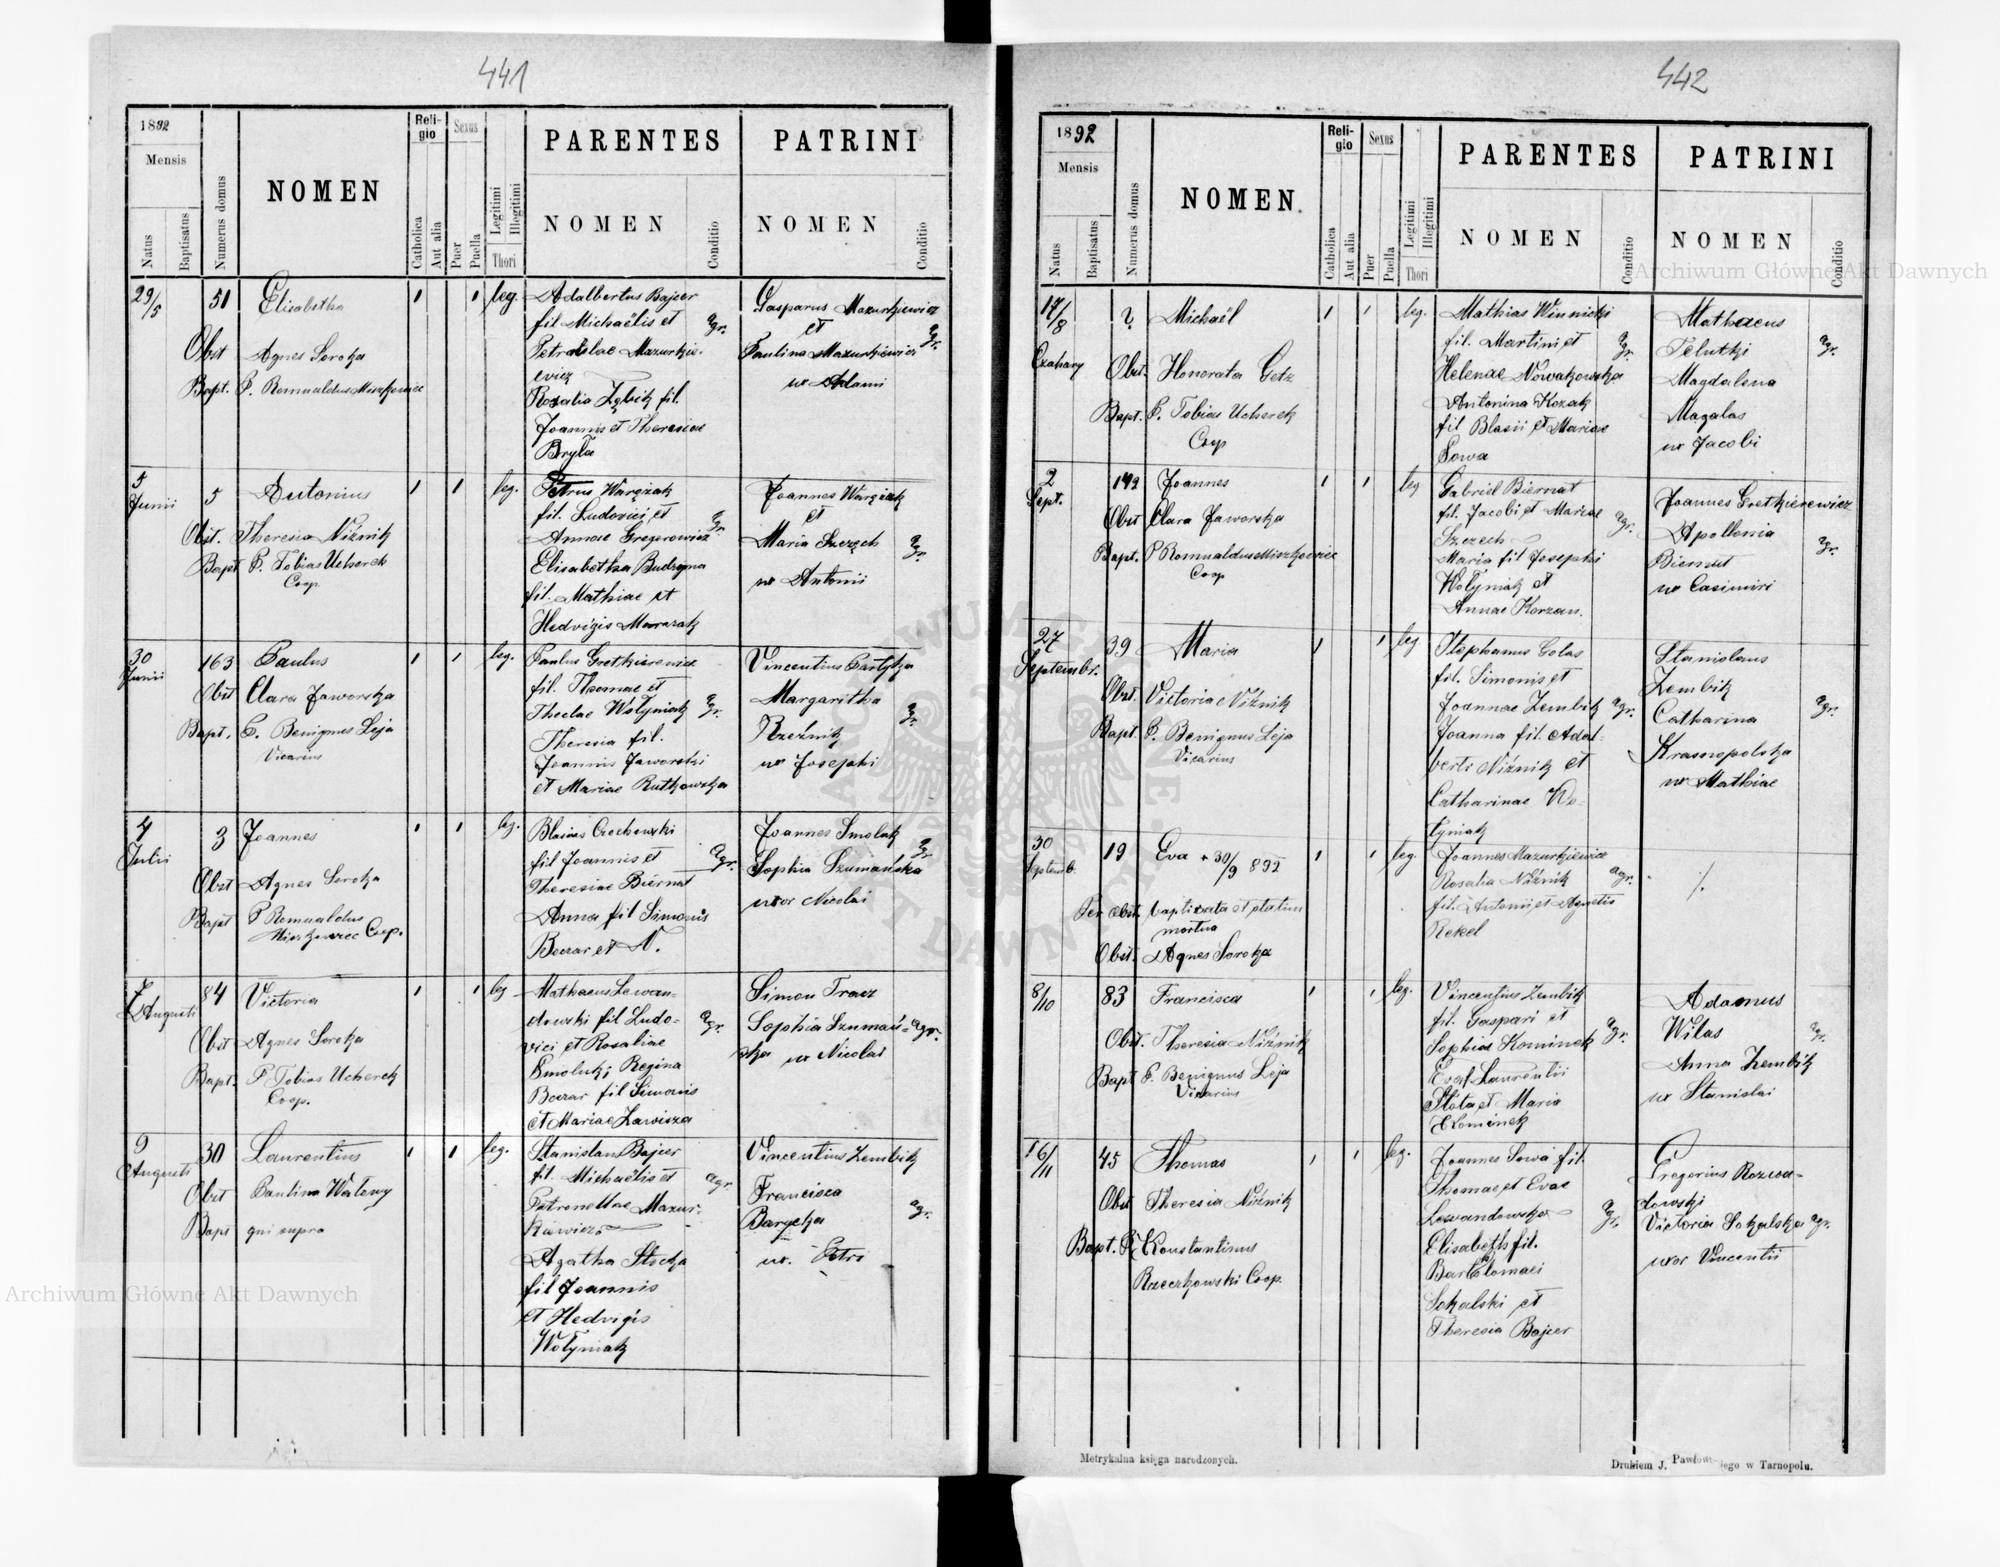 441
1892
Mensis
Natus
Baptisatus
Numerus domus
NOMEN
Reli-
gio
Catholica
Aut alia
Sexus
Puer
Puella
Legitimi
Illegitimi
Thori
PARENTES
NOMEN
Conditio
PATRINI
NOMEN
Conditio
29/5
51
Elisabetha
leg.
Adalbertus Bajcer
fil Michaëlis et
agr.
Mazurkie-
vicz
Rosalia Zębik fil.
Joannis et Theresiae
Bryła
Gasparus Mazurkiewicz
et
agr.
Paulina Mazurkiewicz
ux Adami
Obst Agnes Soroka
Bapt. P. Romualdus
5
Junii
5
Antonius
leg.
Petrus Warężak
fil. Ludovici et
agr.
Annae Gregerowicz
Elisabetha Budzyna
fil. Mathiae et
Hedvigis
Joannes Warężak
et
Maria Szczęch
agr.
ux Antonii
Obst. Theresia Niźnik
Bapt P. Tobias Ucherek
Coop.
30
Junii
163
Paulus
leg.
Paulus Gretkierewicz
fil. Thomae et
Theclae Wołyniak
agr.
Theresia fil.
Joannis Jaworski
et Mariae Rutkowska
Vincentius Partyka
Margaritha
agr.
Rzeźnik
ux Josephi
Obst Clara Jaworska
Bapt. P. Benignus Leja
Vicarius
4
Julii
3
Joannes
leg.
Blasius
fil Joannis et
agr.
Theresiae Biernat
Anna fil Simonis
Boczar et N.
Joannes Smoluk
agr.
Sophia Szumańska
uxor Nicolai
Obst Agnes Soroka
Bapt P Romualdus
Coop.
7
Augusti
84
Victoria
leg
Mathaeus Lewan-
dowski fil Ludo-
agr.
vici et Rosaliae
Smoluk; Regina
Boczar fil Simonis
et Mariae Zawisza
Simon Tracz
Sophia Szumań-
agr.
ska ux Nicolai
Obst Agnes Soroka
Bapt. P Tobias Ucherek
Coop.
9
Augusti
30
Laurentius
leg.
Stanislaus Bajcer
fil. Michaëlis et
agr.
Petronellae Mazur-
kiewicz
Agatha Stocka
fil Joannis
et Hedvigis
Wołyniak
Vincentius Zembik
Francisca
agr.
ux. Petri
Obst Paulina Waleny
Bapt qui supra
442
1892
Mensis
Natus
Baptisatus
Numerus domus
NOMEN.
Reli-
gio
Catholica
Aut alia
Sexus
Puer
Puella
Legitimi
Illegitimi
Thori
PARENTES
NOMEN
Conditio
PATRINI
NOMEN
Conditio
17/8
Czahary
?
Michaël
leg.
Mathias Winnicki
fil. Martini et
agr.
Helenae Nowakowska
Antonina Kozak
fil Blasii et Mariae
Sowa
Mathaeus
Telutki
agr.
Magdalena
Magalas
ux Jacobi
Obst. Honorata Getz
Bapt. P. Tobias Ucherek
Coop
2
Sept.
142
Joannes
leg
Gabriel Biernat
fil. Jacobi et Mariae
agr.
Szczech
Maria fil Josephi
Wołyniak et
Annae Korzan.
Joannes Gretkierewicz
Apollonia
agr.
Biernat
ux Casimiri
Obst Clara Jaworska
Bapt. P Romualdus
Coop
27
Septembr.
39
Maria
leg
Stephanus Golas
fil. Simonis et
Joannae Zembik
agr.
Joanna fil. Adal-
berti Niźnik et
Catharinae Wo-
łyniak
Stanislaus
Zembik
Catharina
agr.
Krasnopolska
ux Mathiae
Obst. Victoria Niźnik
Bapt. P. Benignus Leja
Vicarius
30
Septemb.
19
Eva + 30/9 892
leg.
Joannes Mazurkiewicz
Rosalia Niźnik
agr.
fil. Antonii et Agnetis
Rekel
./.
Per obst. baptisata et statim
mortua
Obst. Agnes Soroka
8/10
83
Francisca
leg.
Vincentius Zembik
fil. Gaspari et
agr.
Sophia Kominek
Laurentii
Słota et Maria
Kominek
Adamus
Wilas
agr.
Anna Zembik
ux Stanislai
Obst. Theresia Niźnik
Bapt P. Benignus Leja
Vicarius
16/11
45
Thomas
leg.
Joannes Sowa fil.
Thomae et Evae
Lewandowska
agr.
Elisabeth fil.
Bartolomaei
Sokalski et
Theresia Bajcer
Gregorius Rozwa-
dowski
Victoria Sokalska agr.
uxor Vincentii
Obst Theresia Niźnik
Bapt. P. Konstantinus
Rzeczkowski Coop.
Metrykalna księga narodzonych.
Drukiem J. Pawłow iego w Tarnopolu.
Archiwum Główne Akt Dawnych
Archiwum Główne Akt Dawnych